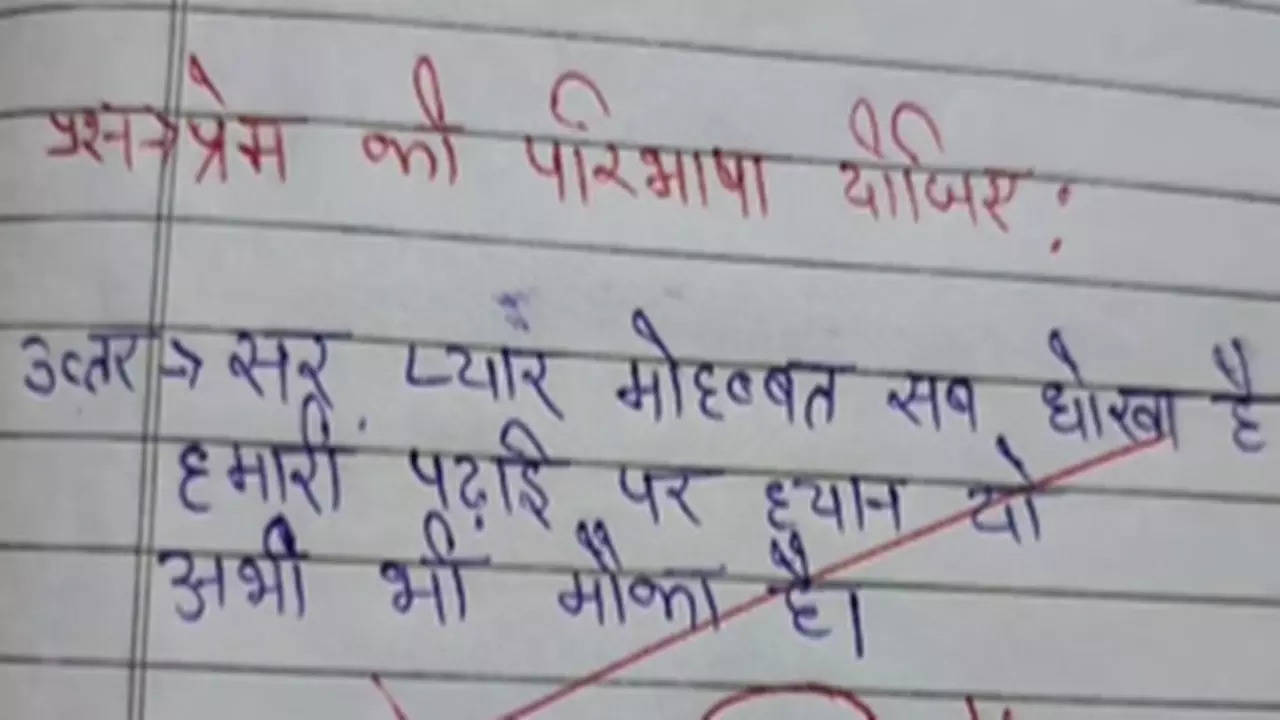 प्रश्न→प्रेम की परिभाषा दीजिए:
उत्तर → सर, प्यार मोहब्बत सब धोखा है
हमारी पढ़ाई पर ध्यान दो
अभी भी मौका है।